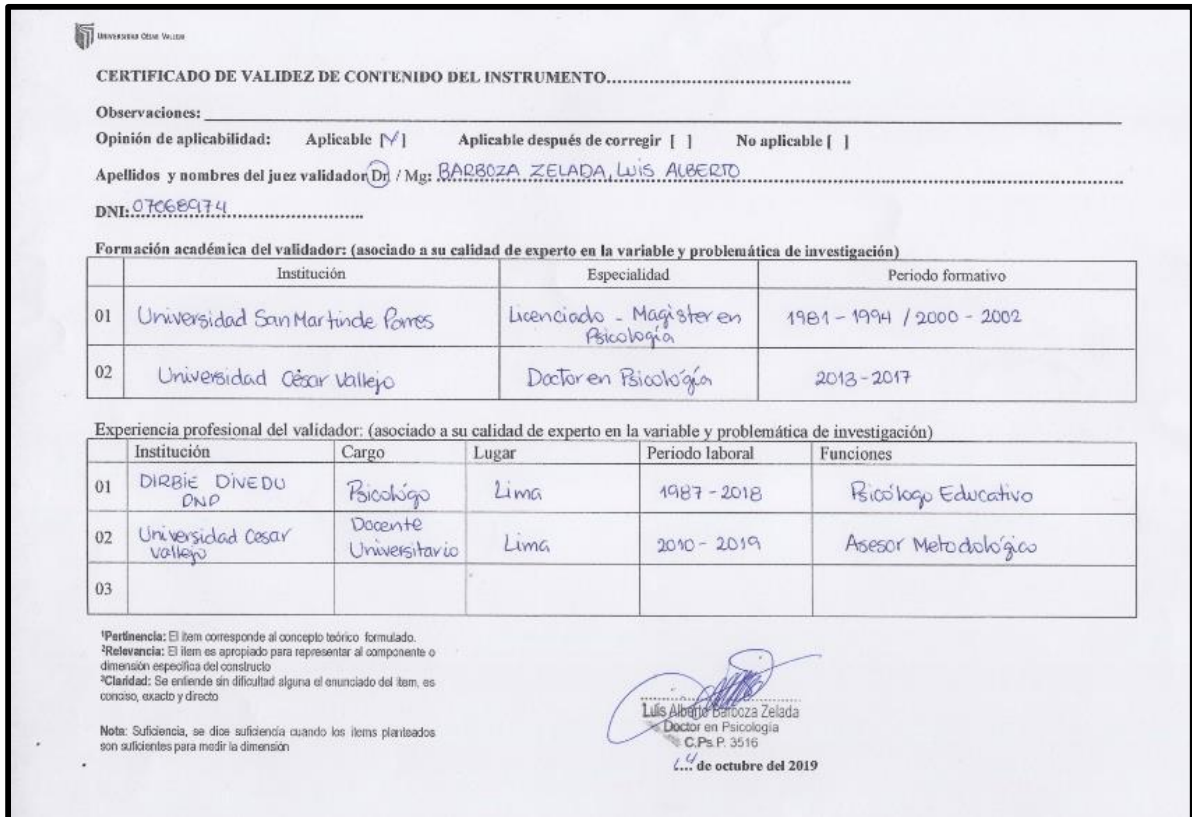 UNIVERSIDAD CÉSAR VALLEJO
CERTIFICADO DE VALIDEZ DE CONTENIDO DEL INSTRUMENTO..............................................
Observaciones:
Opinión de aplicabilidad: Aplicable [✓] Aplicable después de corregir [ ] No aplicable [ ]
Apellidos y nombres del juez validador Dr / Mg: BARBOZA ZELADA, LUIS ALBERTO
DNI: 07068974
Formación académica del validador: (asociado a su calidad de experto en la variable y problemática de investigación)
Institución Especialidad Periodo formativo
01 Universidad San Martin de Porres Licenciado - Magister en Psicología 1981 - 1994 / 2000 - 2002
02 Universidad César Vallejo Doctor en Psicológía 2013 - 2017
Experiencia profesional del validador: (asociado a su calidad de experto en la variable y problemática de investigación)
Institución Cargo Lugar Periodo laboral Funciones
01 DIRBIE DIVEDU PNP Psicológo Lima 1987 - 2018 Psicólogo Educativo
02 Universidad Cesar Vallejo Docente Universitario Lima 2010 - 2019 Asesor Metodológico
03
¹Pertinencia: El ítem corresponde al concepto teórico formulado.
²Relevancia: El ítem es apropiado para representar al componente o
dimensión específica del constructo
³Claridad: Se entiende sin dificultad alguna el enunciado del ítem, es
conciso, exacto y directo
Nota: Suficiencia, se dice suficiencia cuando los ítems planteados
son suficientes para medir la dimensión
Luis Alberto Barboza Zelada
Doctor en Psicología
C.Ps.P. 3516
de octubre del 2019